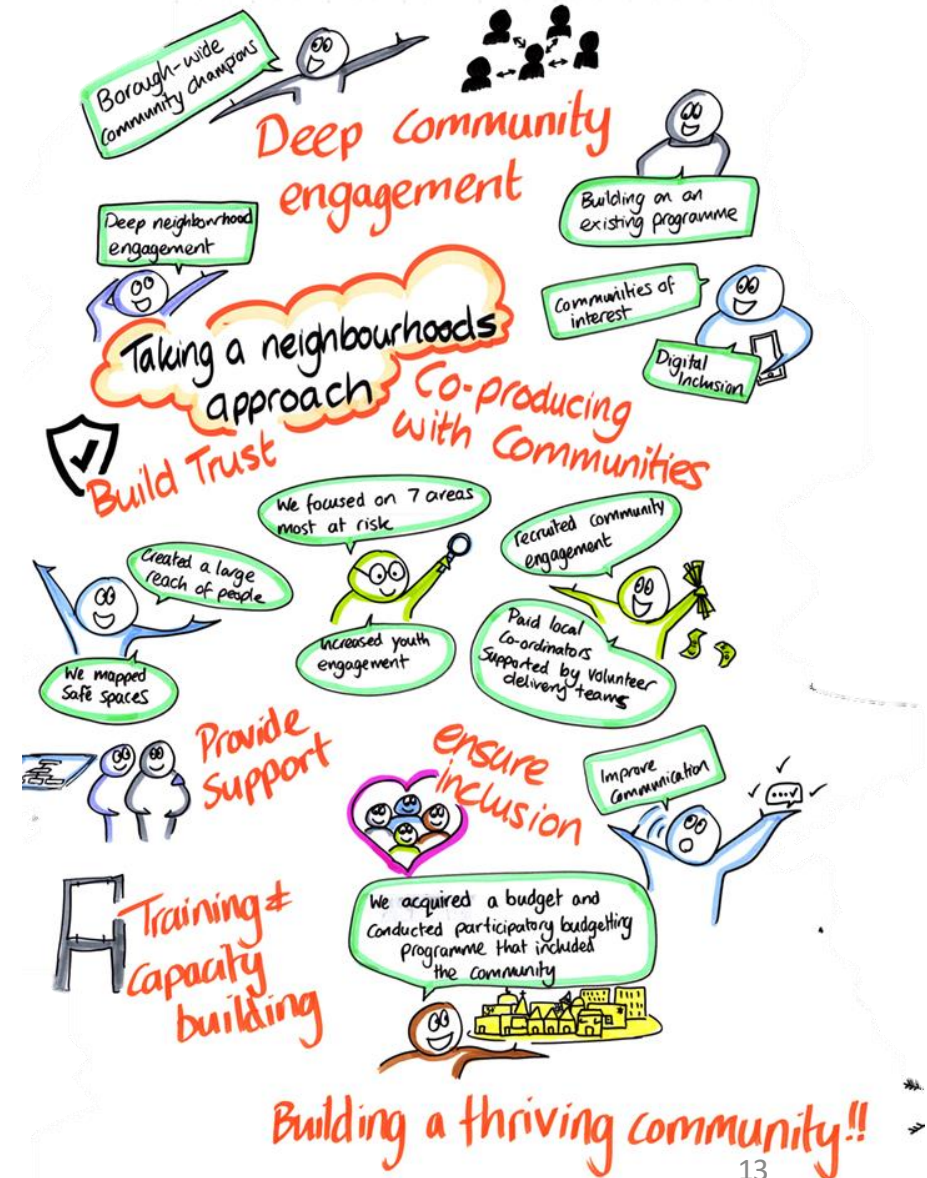 Borough-wide
community champions
Deep community
engagement
Building on an
existing programme
Deep neighbourhood
engagement
Communities of
interest
Digital
Inclusion
Taking a neighbourhoods
approach
Co-producing
with Communities
Build Trust
We focused on 7 areas
most at risk
recruited community
engagement
Created a large
reach of people
Increased youth
engagement
Paid local
Co-ordinators
Supported by volunteer
delivery teams
We mapped
Safe spaces
Provide
Support
ensure
inclusion
Improve
Communication
Training &
capacity
building
We acquired a budget and
conducted participatory budgetting
programme that included
the community
Building a thriving community!!
13